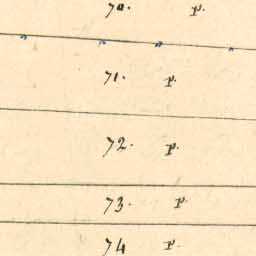 70. p.
" " " "
71. p.
72. p.
73. p.
74 p.